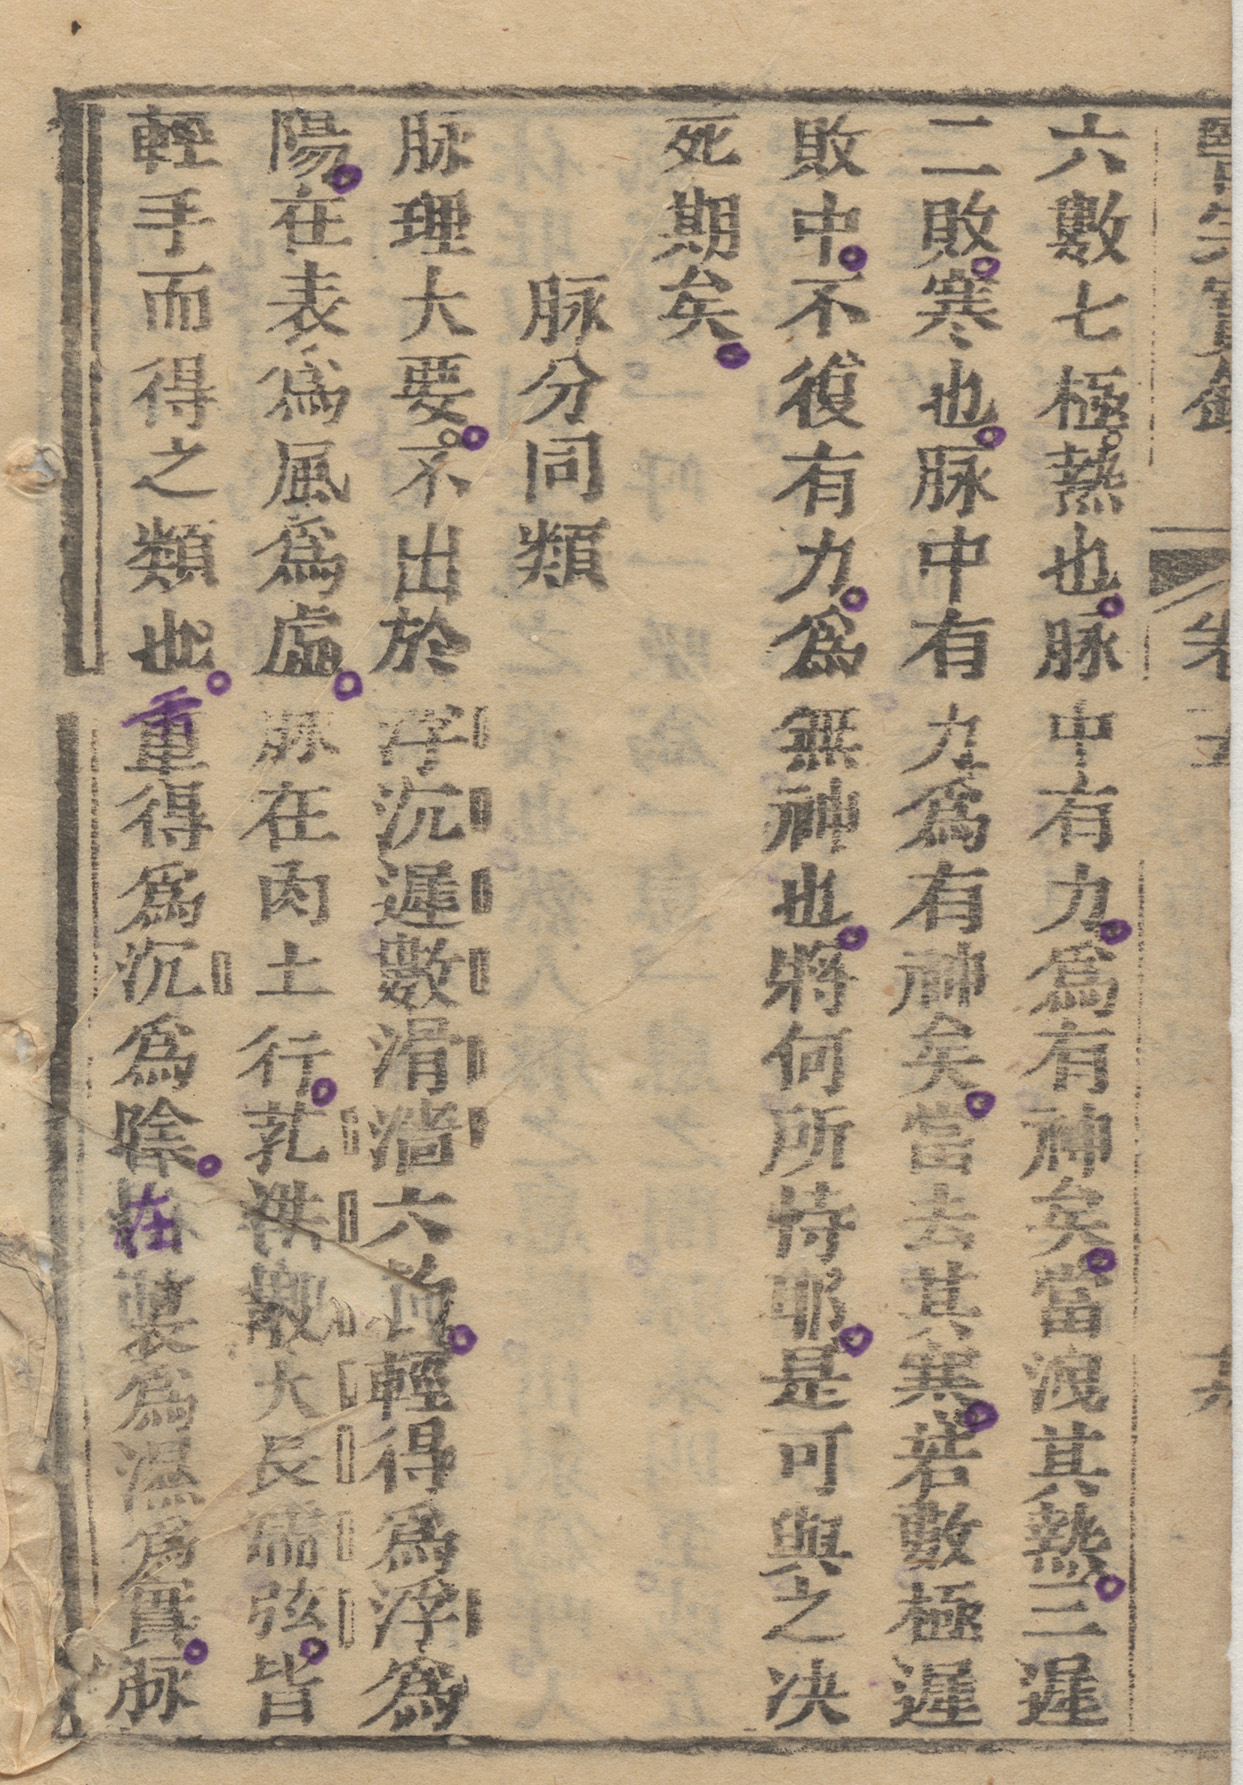 六數七極熱也脉中有力爲有神矣當洩其熱三遲
二敗寒也脉中有力爲有神矣當去其寒若數極遲
敗中不復有力爲無神也將何所恃耶是可與之决
死期矣
脉分同類
脉理大要不出於浮沉遲數滑濇六者輕得爲浮爲
陽在表爲風爲虛脉在肉上行芤散大長濡弦皆
輕手而得之類也重得爲沉爲陰在裏爲濕爲實脉